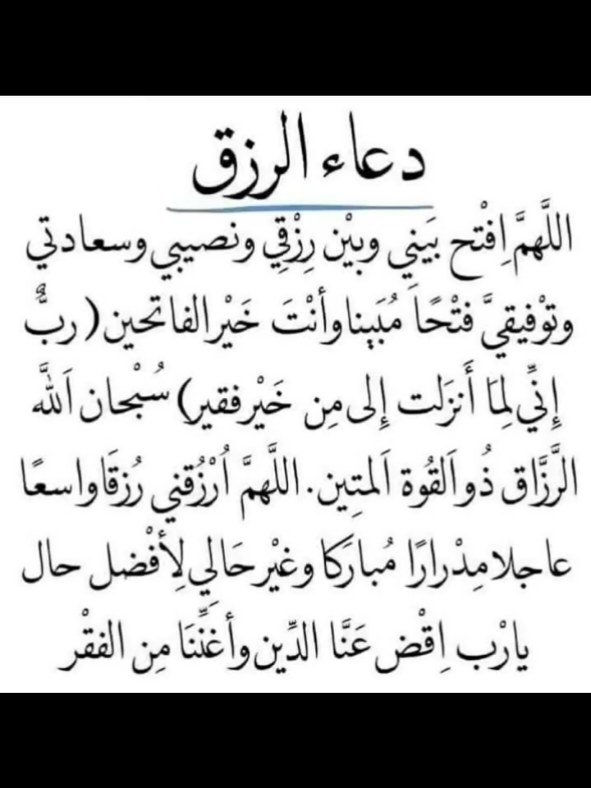 دعاء الرزق
اللَّهمَّ اِفْتح بَيَني وبيْن رِزْقِي ونصيبي وسعادتي
وتوْفيقيَّ فتْحًا مُبَينا وأنْتَ خَيْر الفاتحين ( ربٌّ
إنِّي لِمَا أَنزَلت إلى مِن خَيْر فقير) سُبْحان اَللَّه
الرَّزَّاق ذُو اَلقُوة اَلمتِين. اللَّهمَّ اُرْزُقني رُزقَا واسعًا
عاجلا مِدْرارًا مُبارَكا وغيْر حَالي لِأفْضل حال
يارْب اِقْض عَنَّا الدِّين وأغَنِّنَا مِن الفقْر